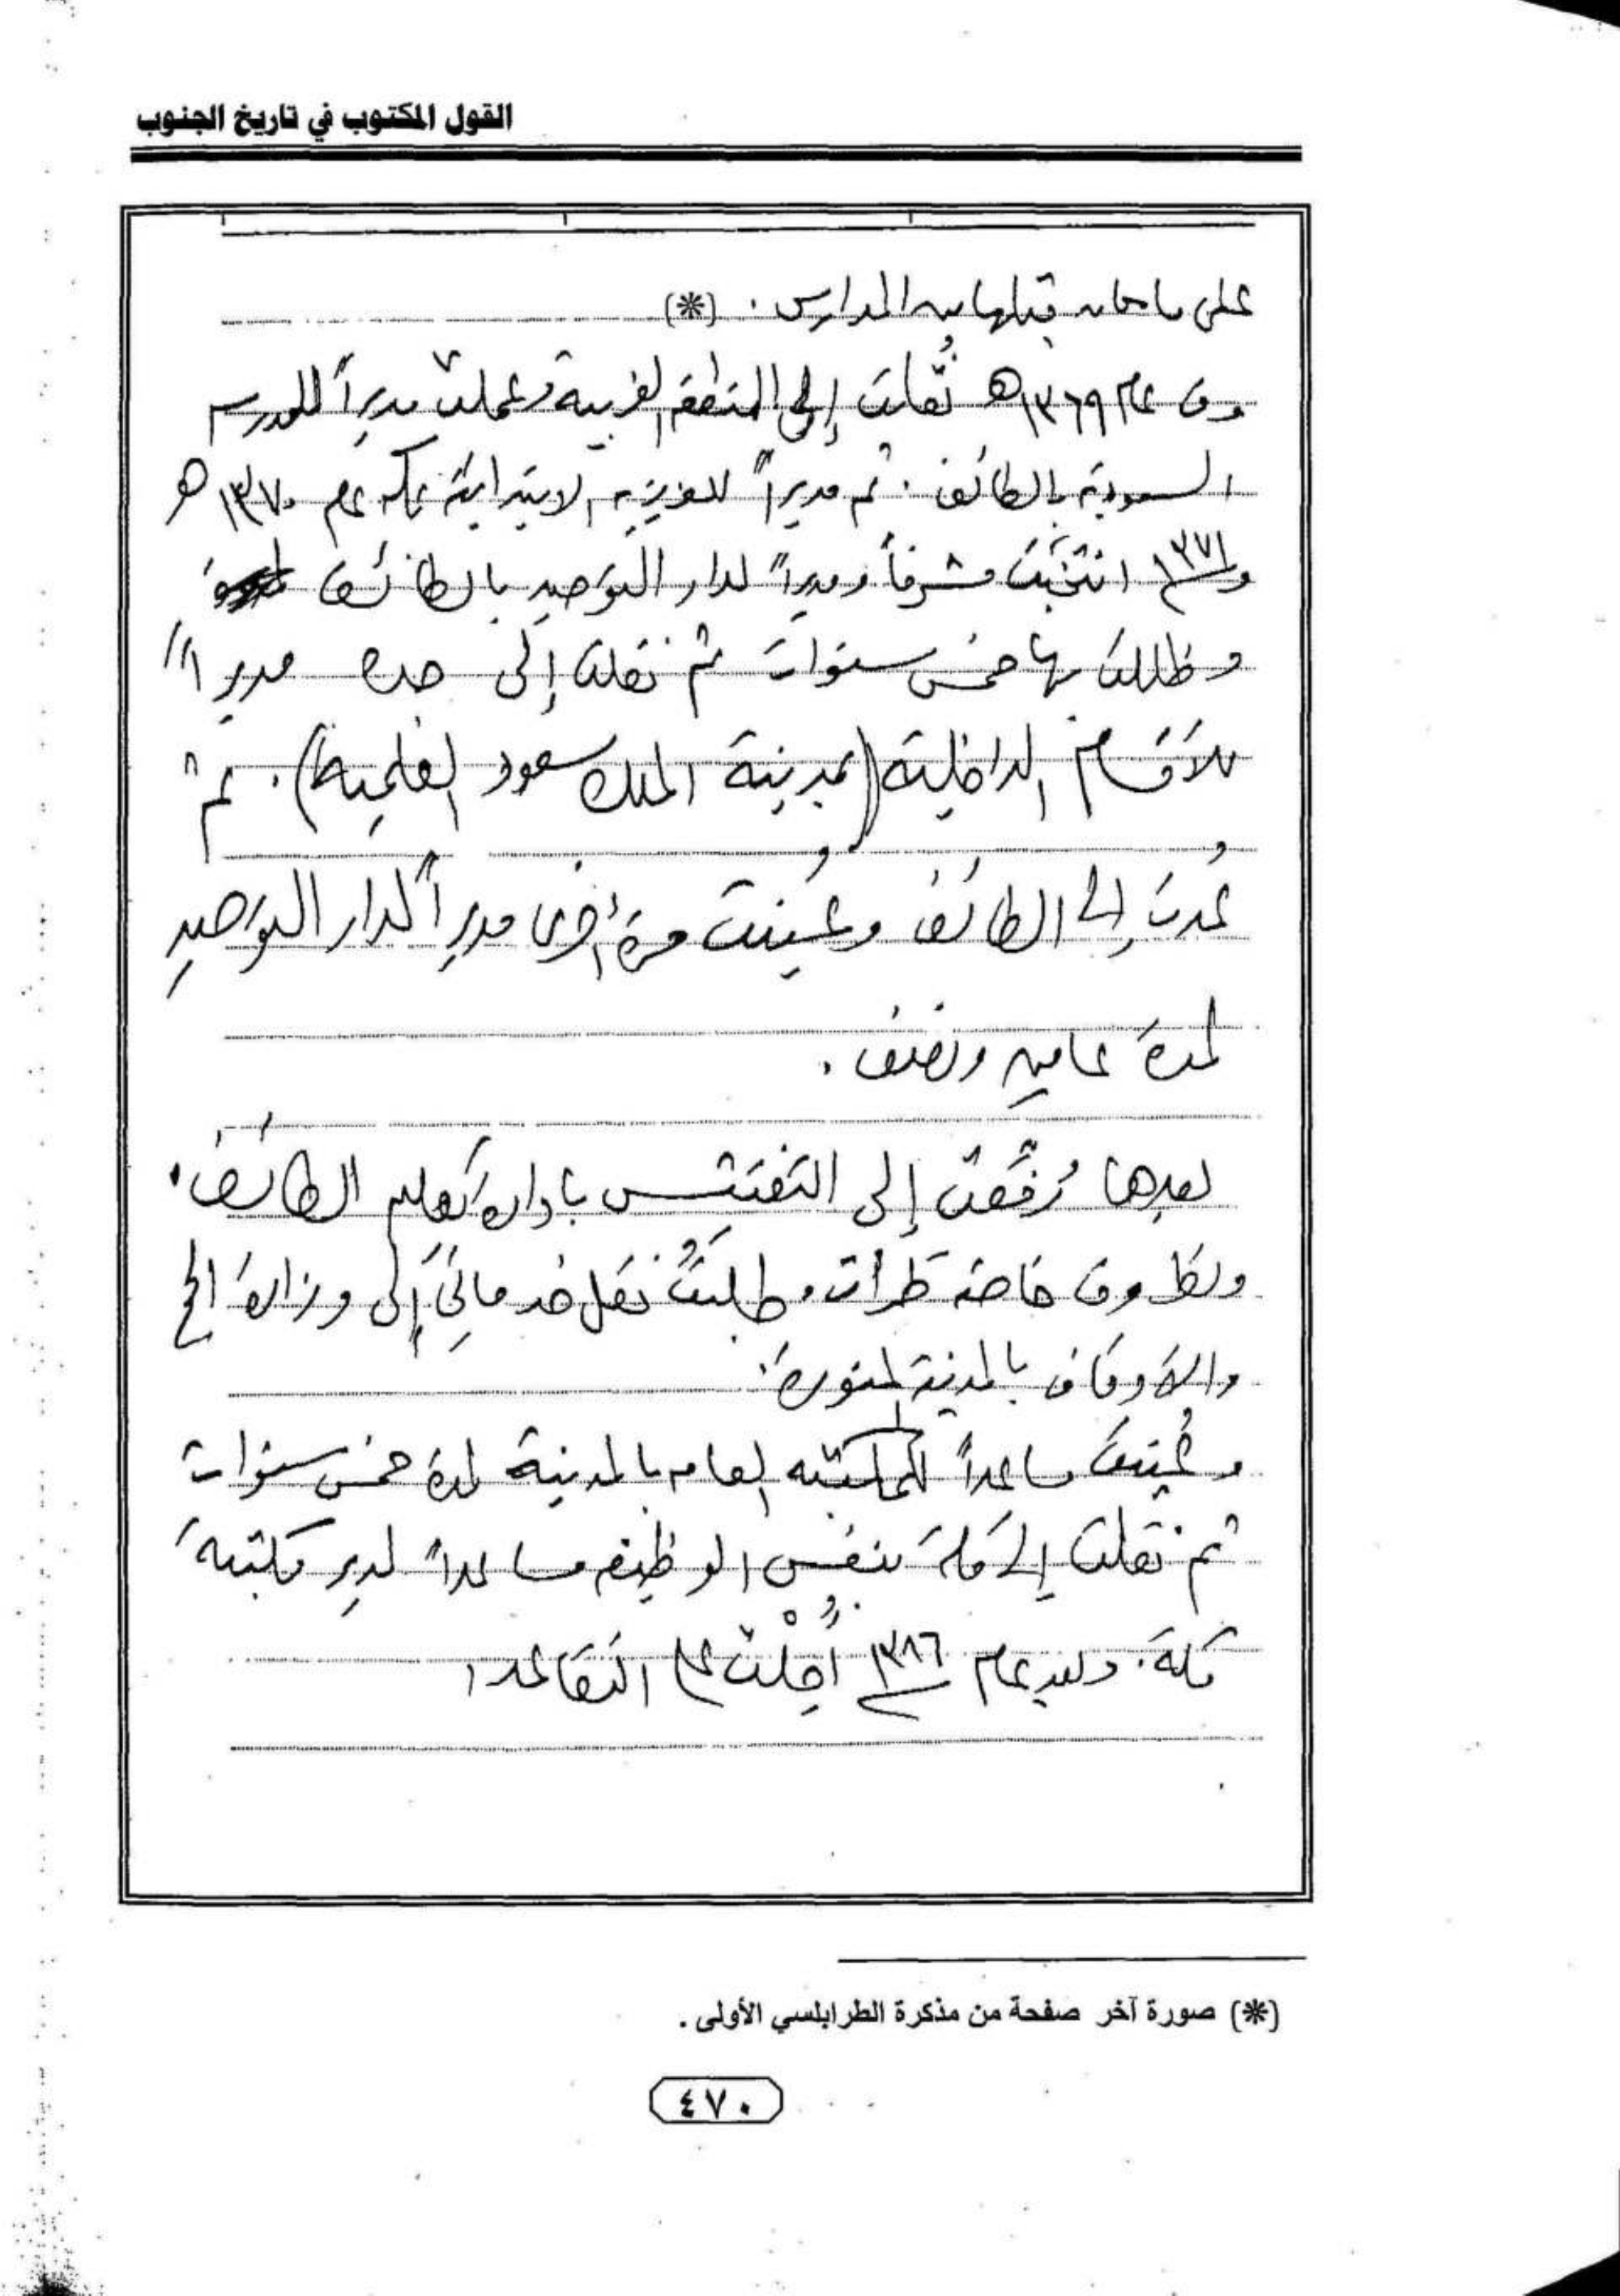 القول المكتوب في تاريخ الجنوب
على ما كان قبلها من المدارس . (*)
وفي عام ١٣٦٩هـ نُقلت إلى المنطقة الغربية وعملت مديراً للمدرسة
السعودية بالطائف . ثم مديراً للعزيزية الابتدائية بمكة عام ١٣٧٠هـ
و١٣٧١ انتخبت مشرفاً ومديراً لدار التوحيد بالطائف
وظللت بها خمس سنوات ثم نقلت إلى جدة مديراً
للأقسام الداخلية (بمدينة الملك سعود العلمية) . ثم
عُدت إلى الطائف وعُينت مرة أخرى مديراً لدار التوحيد
لمدة عامين ونصف .
بعدها رُفّعت إلى التفتيش بإدارة تعليم الطائف .
ولظروف خاصة طرأت . طلبتُ نقل خدماتي إلى وزارة الحج
والأوقاف بالمدينة المنورة .
وعُينت مساعداً للمكتبة العامة بالمدينة لمدة خمس سنوات
ثم نقلت إلى مكة بنفس الوظيفة مساعداً لمدير مكتبة
مكة . وبعد عام ١٣٨٦ أُحِلْتُ على التقاعد ،
(*) صورة آخر صفحة من مذكرة الطرابلسي الأولى .
٤٧٠